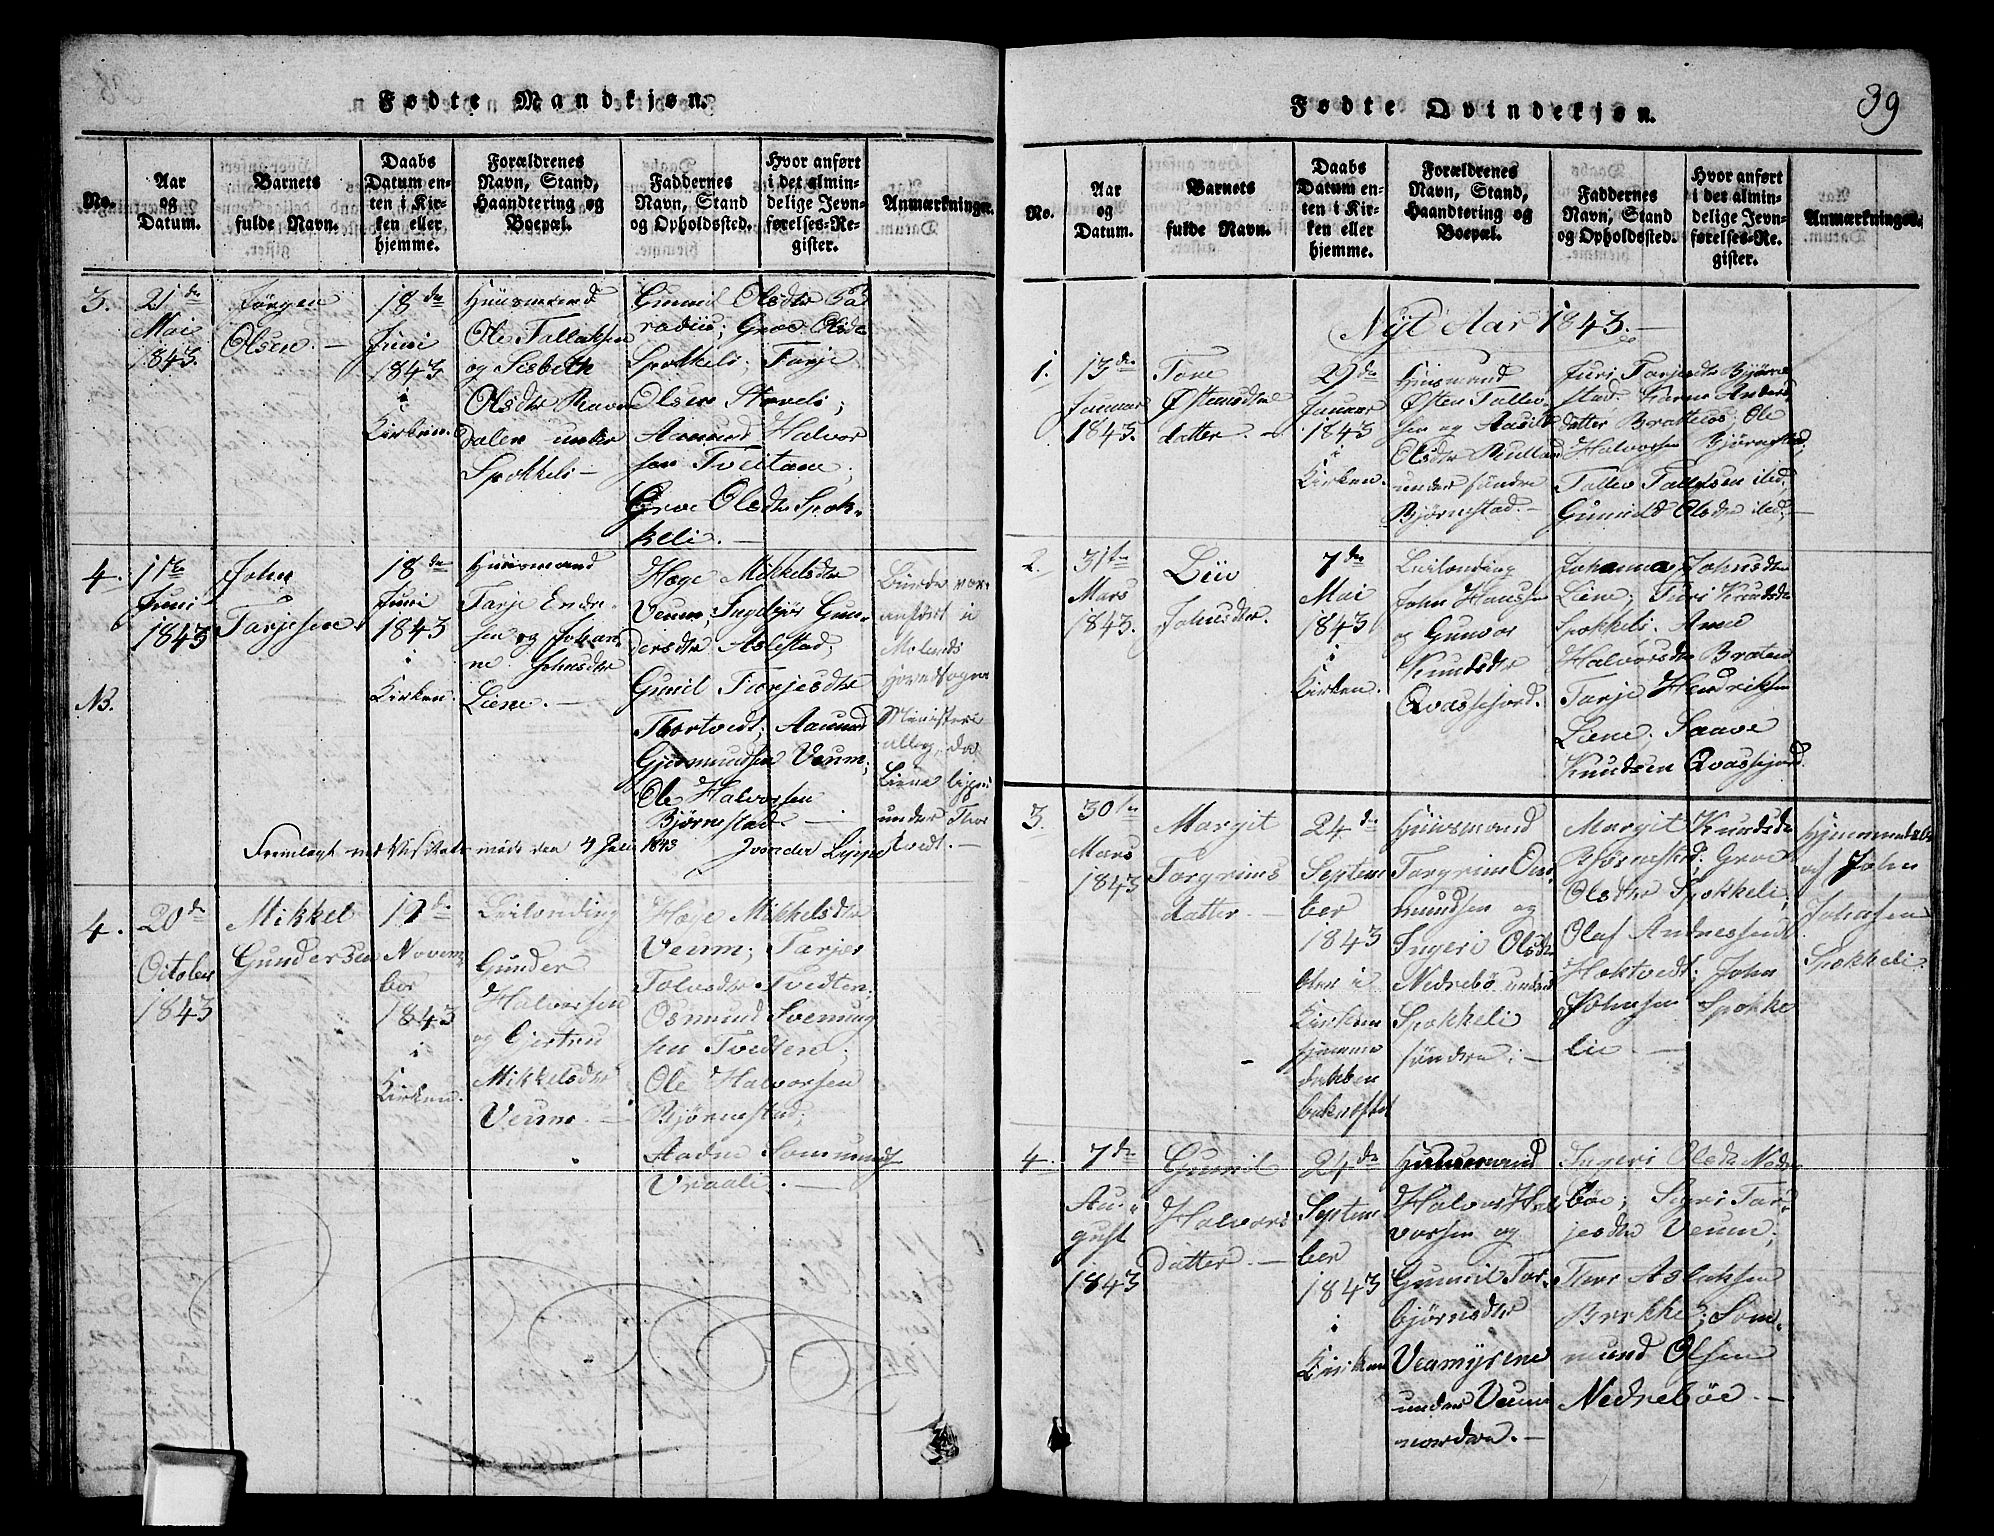 Fødte Mandkjøn.
No.
Aar
og
Datum.
Barnets
fulde Navn.
Daabs
Datum en-
ten i Kir-
ken eller
hjemme.
Forældrenes
Navn, Stand,
Haandtering og
Boepæl.
Faddernes
Navn, Stand
og Opholdssted.
Hvor anført
i det almin-
delige Jevn-
førelses-Re-
gister.
Anmærkninger.
3.
21de
Mai
1843.
Jørgen
Olsen. —
18de
Juni
1843
i
Kirken.
Huusmand
Ole Tallaksen
og Lisbeth
Olsdtr Ravne
dalen under
Spokkeli —
Gunild Olsdtr
Groe Olsdtr
Spokkeli; Tarje
Olsen
Aanund Halvor
sen Tveitane,
Groe Olsdtr Spok-
keli. —
4.
NB.
11te
Juni
1843
John
Tarjesen
18de
Juni
1843
i
Kirken.
Huusmand
Tarje Endre-
sen og Johan-
ne Johnsdtr
Liene. —
Hæge Mikkelsdtr
Veum; Ingebjør Gun-
dersdtr Aslestad;
Gunil Tarjesdtr
Thortvedt; Aanund
Gjermundsen Veum;
Ole Halvorsen
Bjørnestad. —
Burde vær
anført i
Molands
hovedsogns
Ministeri
alb. da
Liene ligge
under Thor
tvedt. —
Fremlagt ved Visitats møde den 4 Juli 1843
4.
20de
October
1843
Mikkel
Gundersen
12de
Novem-
ber
1843
i
Kirken.
Leilænding
Gunder
Halvorsen
og Gjertru
Mikkelsdtr
Veum. —
Hæge Mikkelsdtr
Veum; Tarjer
Tolvsdtr Tvedten;
Osmund Svenung
sen Tvedten;
Ole Halvorsen
Bjørnestad;
Aadne Sommundsen
Vraali. —
Fødte Qvindekjøn.
39
No.
Aar
og
Datum.
Barnets
fulde Navn.
Daabs
Datum en-
ten i Kir-
ken eller
hjemme.
Forældrenes
Navn, Stand,
Haandtering og
Boepæl.
Faddernes
Navn, Stand
og Opholdssted.
Hvor anført
i det almin-
delige Jevn-
førelses-Re-
gister.
Anmærkninger.
Nyt Aar 1843. —
1.
13de
Januar
1843.
Tone
Østensdtr
datter. —
29de
Januar
1843
i
Kirken.
Huusmand
Østen Tallev
sen og Aasild
Olsdtr
under søndre
Bjørnestad. —
Juri Tarjesdtr Bjørne
stad. Karen Anders
datter Bratteus; Ole
Halvorsen Bjørnestad;
Tallev Tallevsen ibid.
Gunild Olsdtr ibid; —
2.
31te
Mars
1843.
Liv
Johnsdtr.
7de
Mai
1843
i
Kirken.
Leilænding
John Hansen
og Gunvor
Knudsdtr
Qvassfjord.
Johanna Johnsdtr
Liene; Turi Knudsdtr
Spokkeli. Anne
Halvorsdtr Braten
Tarje Hendriksen
Liene; Saave
Knudsen Qvasfjord.
3.
30te
Mars
1843
Margit
Torgrims
datter. —
24de
Septem
ber
1843
blev i
Kirken
hjemme
daaben
bekræftet
Huusmand
Torgrim Os-
mundsen og
Ingeri Olsdtr
Nedrebø under
Spokkeli
søndre. —
Margit Knudsdtr
Bjørnestad; Groe
Olsdtr Spokkeli;
Olaf Andressen
Hoktvedt; John
Johnsen Spokke
lie. —
Hjemmedøbt
af John
Johnsen
Spokkeli.
4.
7de
Au-
gust
1843
Gunil
Halvors
datter. —
24de
Septem
ber
1843
i
Kirken
Huusmand
Halvor Hal
vorsen og
Gunvil Tor-
bjørnsdtr
Veamyrene
under Veum
nordre. —
Ingeri Olsdtr Nedre
bøe; Sigri Tar-
jesdtr Veum;
Thor Aslaksen
Brekke; Som-
mund Olsen
Nedrebøe. —